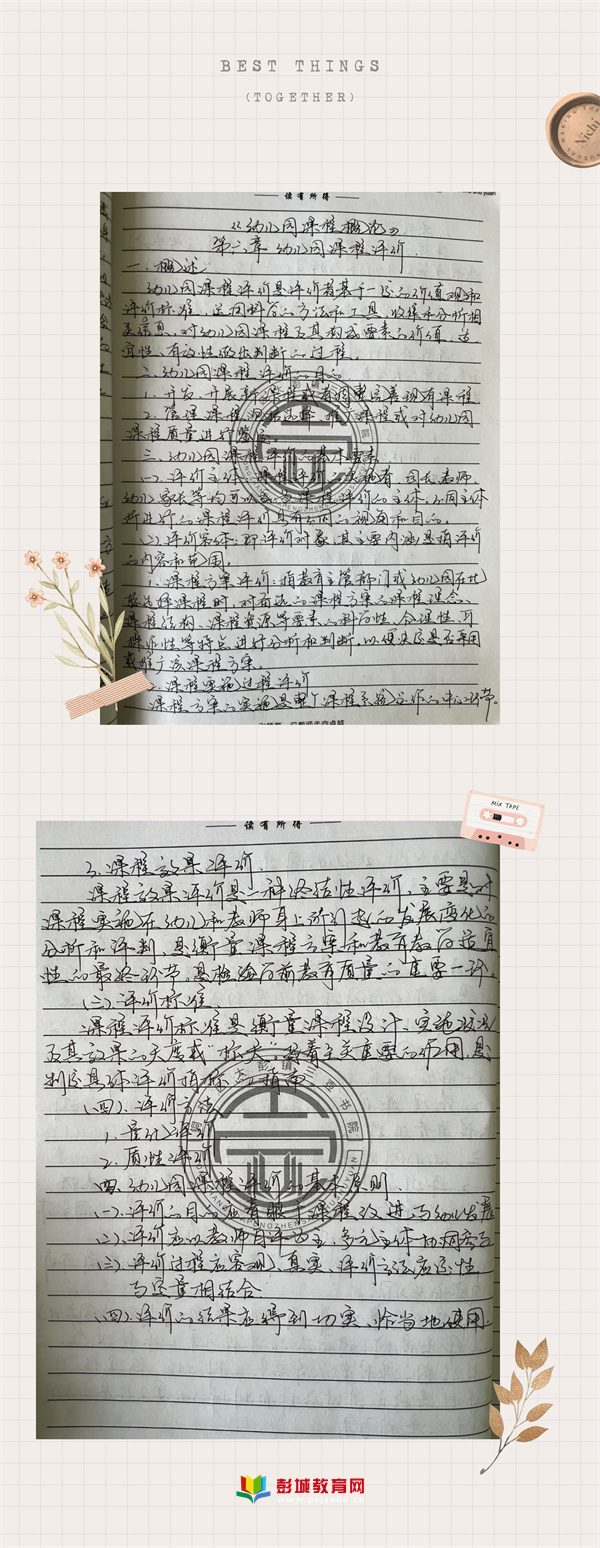 BEST THINGS
(TOGETHER)
Nichi
读有所得
《幼儿园课程概论》
第六章 幼儿园课程评价
一、概述
幼儿园课程评价是评价者基于一定的价值观和
评价标准，运用科学的方法和工具，收集和分析相
关信息，对幼儿园课程及其构成要素的价值、适
宜性、有效性做出判断的过程。
二、幼儿园课程评价的目的
1、开发、开展新课程或者调整完善现有课程
2、管理课程，选择、推广课程或对幼儿园
课程质量进行鉴定。
三、幼儿园课程评价的基本要素
(一)、评价主体：课程评价的实施者，园长、老师、
幼儿、家长等均可以成为课程评价的主体，不同主体
所进行的课程评价具有不同的视角和目的。
(二)、评价客体：即评价对象，其主要内涵是指评价
的内容和范围。
1、课程方案评价：指教育主管部门或幼儿园在
选择课程时，对有关的课程方案的课程理念、
课程结构、课程资源等要素的科学性、合理性、可
操作性等特点进行分析和判断，以便决定是否采用
或推广该课程方案。
2、课程实施过程评价
课程方案的实施是整个课程系统运作的中心环节。
MIX TAPE
读有所得
3、课程效果评价
课程效果评价是一种终结性评价，主要是对
课程实施在幼儿和教师身上所引起的发展变化的
分析和评判，是衡量课程方案和教育教学适宜
性的最终环节，是检验学前教育质量的重要一环。
(三)、评价标准
课程评价标准是衡量课程设计、实施状况
及其效果的尺度或“标尺”，起着至关重要的作用，是
制定具体评价指标的指南。
(四)、评价方法
1、量化评价
2、质性评价
四、幼儿园课程评价的基本原则
(一)、评价的目的应有助于课程改进与幼儿发展
(二)、评价应以教师自评为主，多元主体协同参与
(三)、评价过程应客观、真实、评价方法应定性
与定量相结合
(四)、评价的结果应得到切实、恰当地使用
彭城教育网